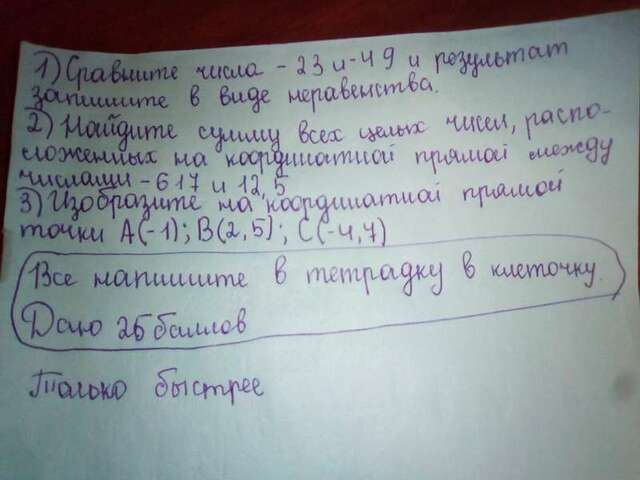 1) Сравните числа -23 и -49 и результат
запишите в виде неравенства.
2) Найдите сумму всех целых чисел, распо-
сложенных на координатной прямой между
числами -617 и 12,5
3) Изобразите на координатной прямой
точки A(-1); B(2,5); C(-4,7)
Все напишите в тетрадку в клеточку.
Даю 25 баллов
Только быстрее